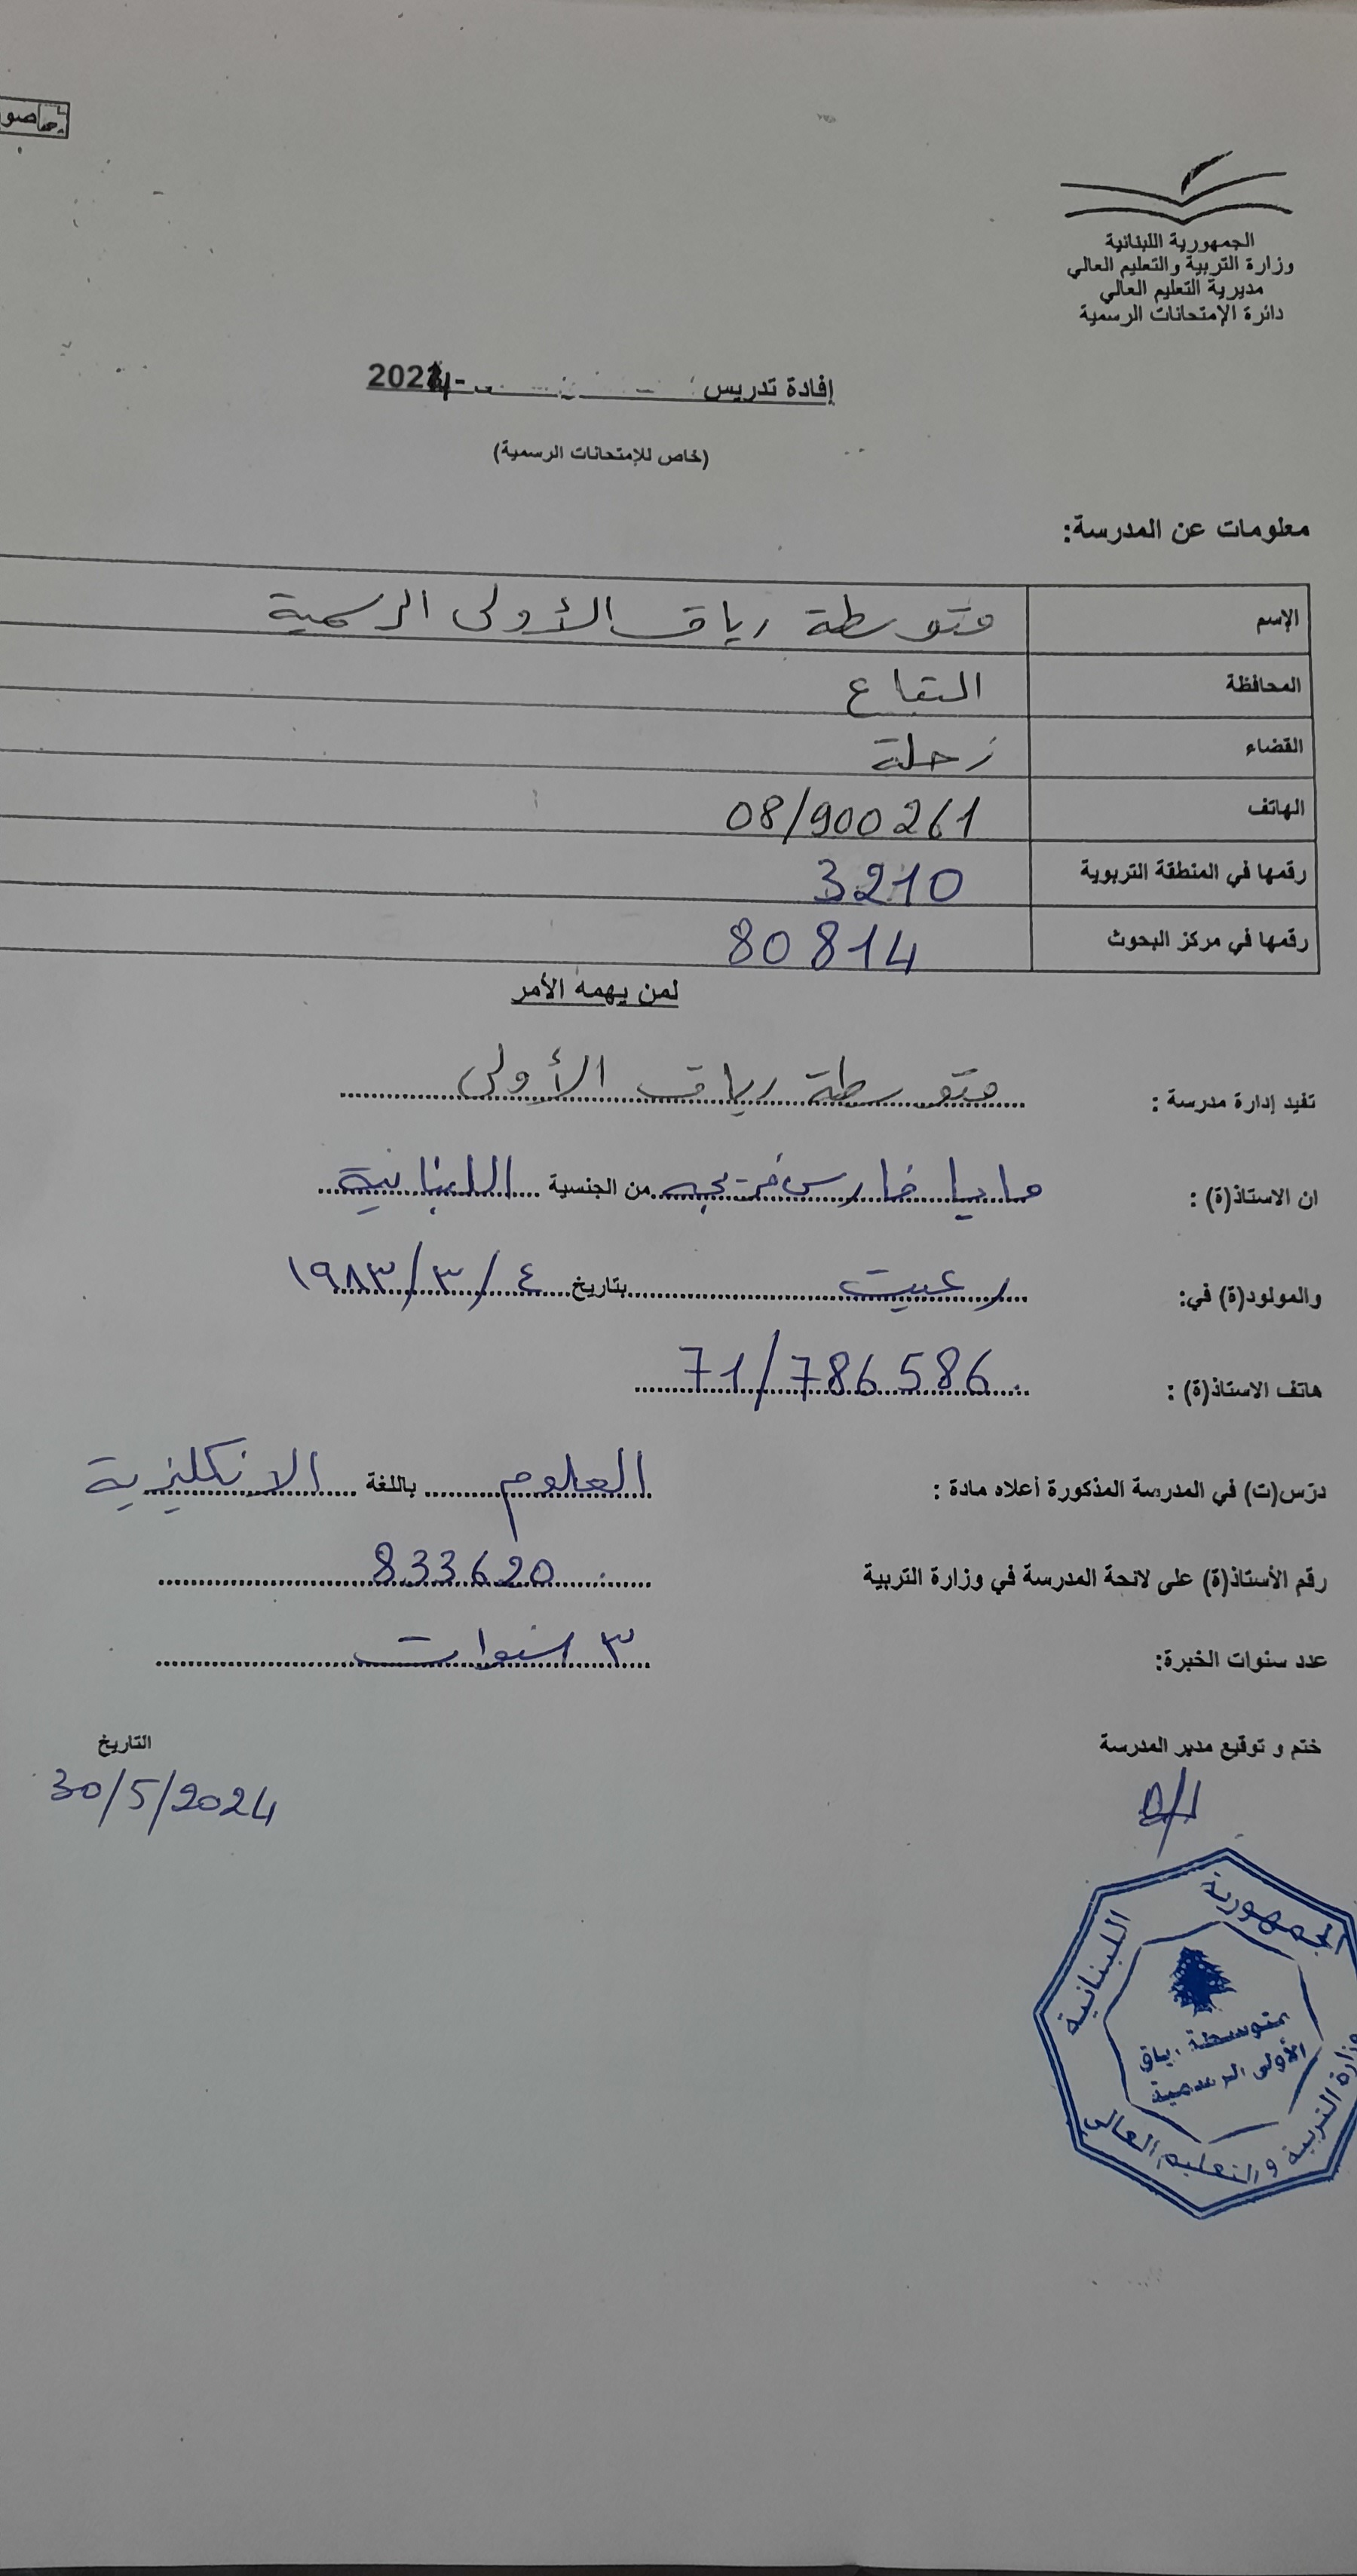 الجمهورية اللبنانية
وزارة التربية والتعليم العالي
مديرية التعليم العالي
دائرة الإمتحانات الرسمية
إفادة تدريس - 2024
(خاص للإمتحانات الرسمية)
معلومات عن المدرسة:
الإسم متوسطة رياق الأولى الرسمية
المحافظة البقاع
القضاء زحلة
الهاتف 08/900261
رقمها في المنطقة التربوية 3210
رقمها في مركز البحوث 80814
لمن يهمه الأمر
تفيد إدارة مدرسة : متوسطة رياق الأولى
ان الاستاذ(ة) : مايا فارس فريجه من الجنسية اللبنانية
والمولود(ة) في: رعيت بتاريخ ٤/٣/١٩٨٣
هاتف الاستاذ(ة) : 71/786586
درّس(ت) في المدرسة المذكورة أعلاه مادة : العلوم باللغة الانكليزية
رقم الأستاذ(ة) على لائحة المدرسة في وزارة التربية 833620
عدد سنوات الخبرة: ٣ سنوات
ختم و توقيع مدير المدرسة التاريخ
30/5/2024
الجمهورية اللبنانية
وزارة التربية والتعليم العالي
متوسطة رياق
الأولى الرسمية